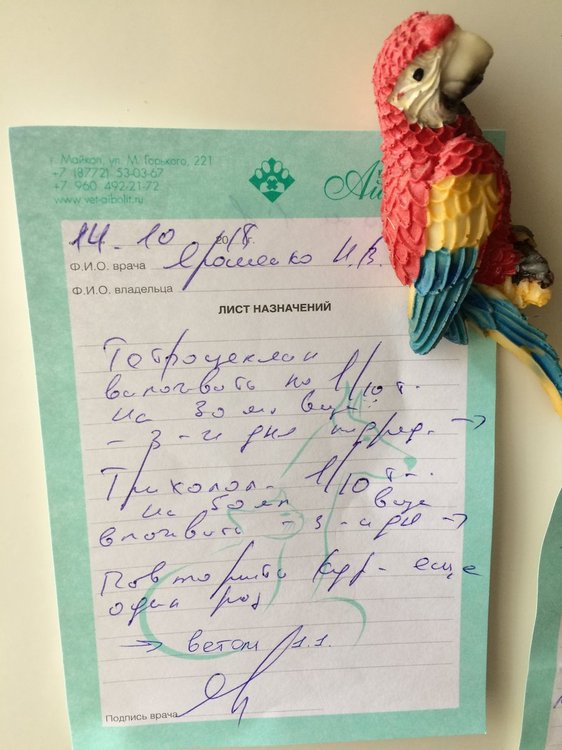 г. Майкоп, ул. М. Горького, 221
+7 (8772) 53-03-67
+7 960 492-21-72
www.vet-aibolit.ru
14-10 2018г.
Ф.И.О. врача И.В.
Ф.И.О. владельца
ЛИСТ НАЗНАЧЕНИЙ
Тетрациклин
выпаивать по 1/10 т.
на 30 мл
- 3-и дня →
Трихопол - 1/10 т-
на 50 мл
выпаивать - 3-и дн →
Повторить курс еще
один раз
→ ветом 1.1.
Подпись врача